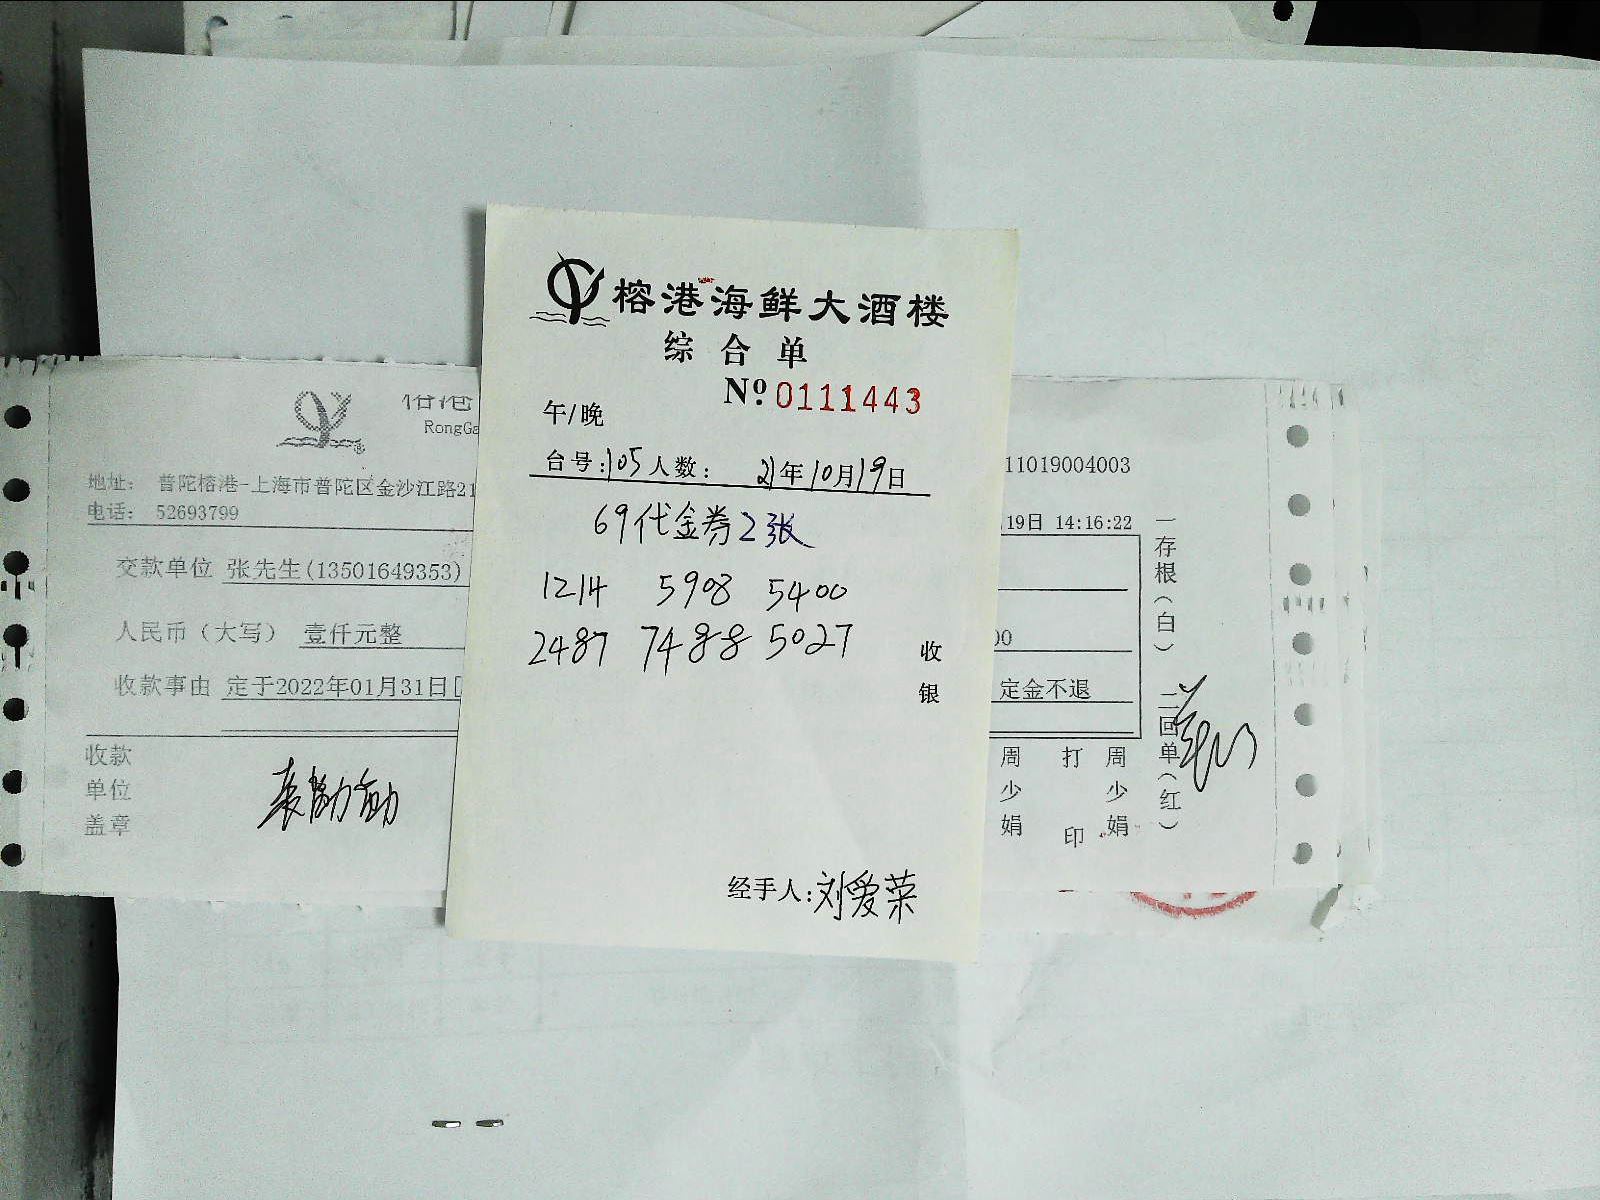 榕港海鲜大酒楼
综合单
№ 0111443
午/晚
台号:105 人数: 21年10月19日
69代金券2张
1214 5908 5400
2487 7488 5027
收银
经手人:刘爱荣
榕港
RongGa
地址: 普陀榕港-上海市普陀区金沙江路21
电话: 52693799
交款单位 张先生(13501649353)
人民币(大写) 壹仟元整
收款事由 定于2022年01月31日[
收款
单位
盖章
11019004003
19日 14:16:22
00
定金不退
周少娟
打印
周少娟
一存根(白) 二回单(红)